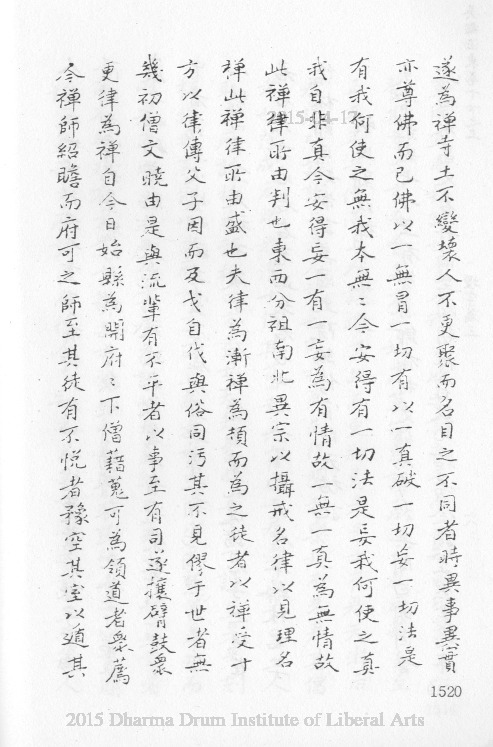 遂為禪寺土不變壞人不更聚而名目之不同者時異事異實
亦尊佛而已佛以一無冒一切有以一真破一切妄一切法是
有我何使之無我本無〻今安得有一切法是妄我何使之真
我自非真今安得妄一有一妄為有情故一無一真為無情故
此禪律所由判也東西分祖南北異宗以攝戒名律以見理名
禪此禪律所由盛也夫律為漸禪為頓而為之徒者以禪受十
方以律傳父子因而及戈自伐與俗同污其不見僇于世者無
幾初僧文曉由是與流輩有不平者以事至有司遂攘臂鼓眾
更律為禪自今日始縣為開府〻下僧藉蒐可為領道老眾薦
令禪師紹瞻而府可之師至其徒有不悅者豫空其室以遁其
1520
2015-04-17
2015 Dharma Drum Institute of Liberal Arts